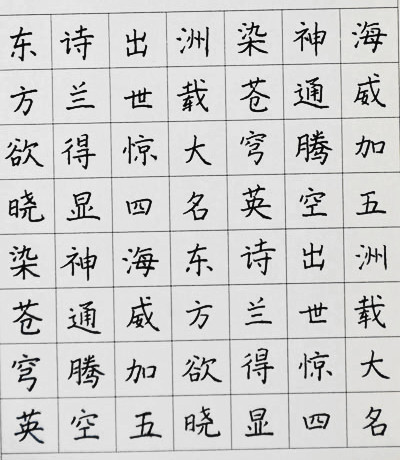 东诗出洲染神海
方兰世载苍通威
欲得惊大穹腾加
晓显四名英空五
染神海东诗出洲
苍通威方兰世载
穹腾加欲得惊大
英空五晓显四名